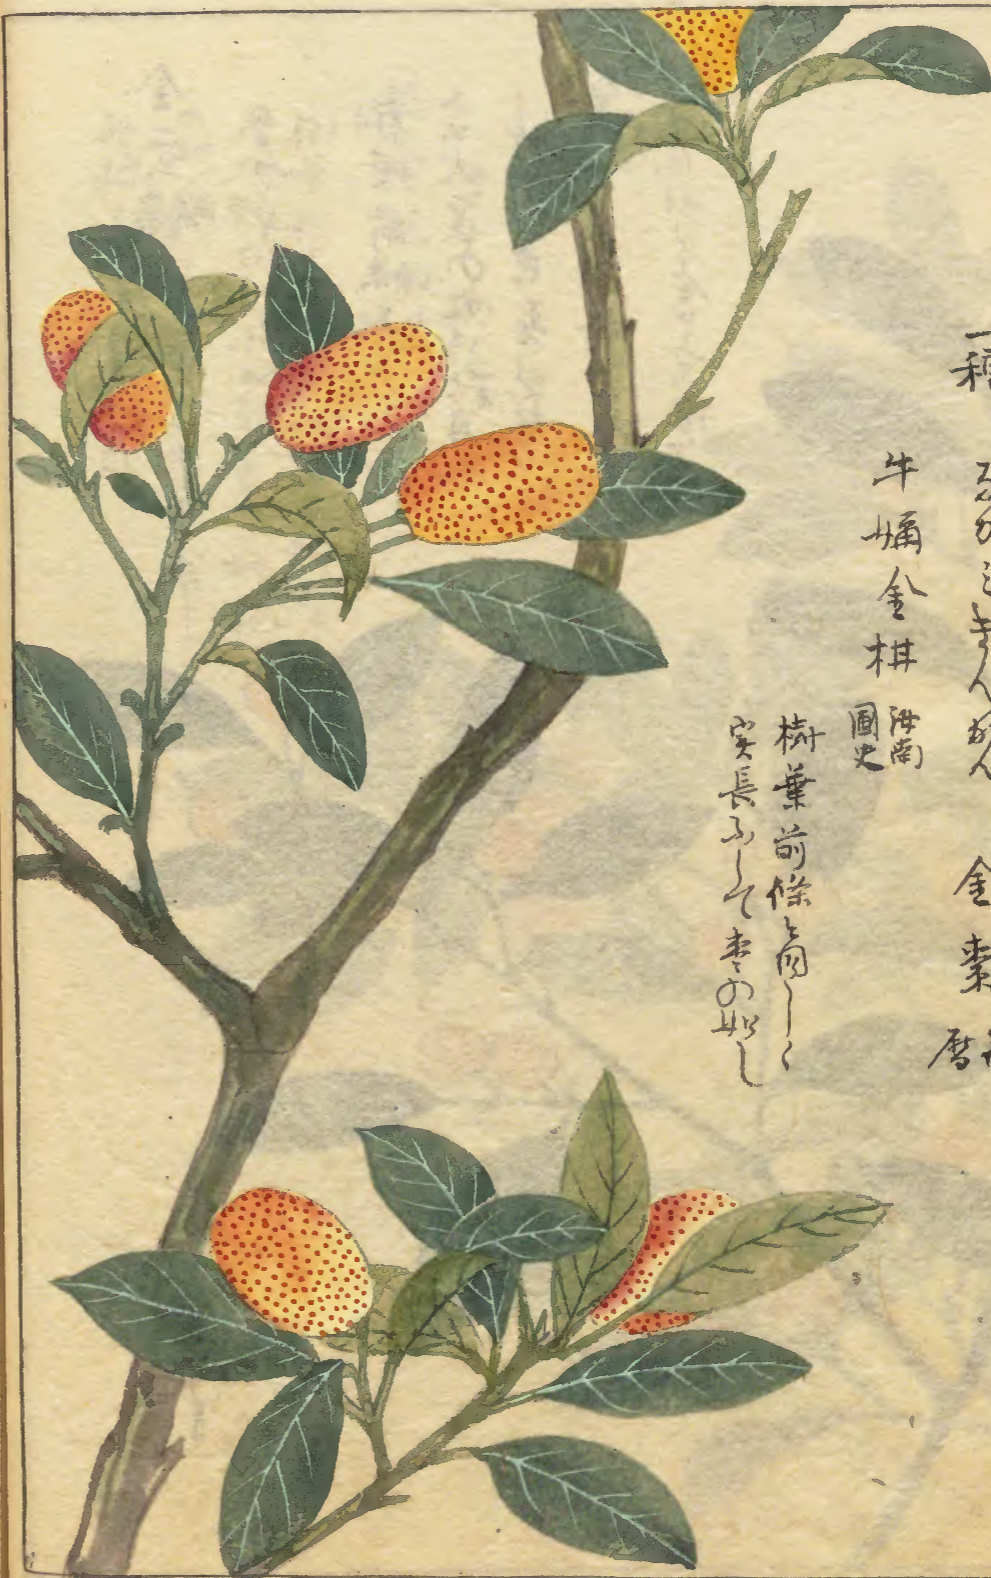 一種 ながみきんかん 金棗 暦
牛嬭金柑 汝南圃史
樹葉前條と同しく
実長にして棗の如し